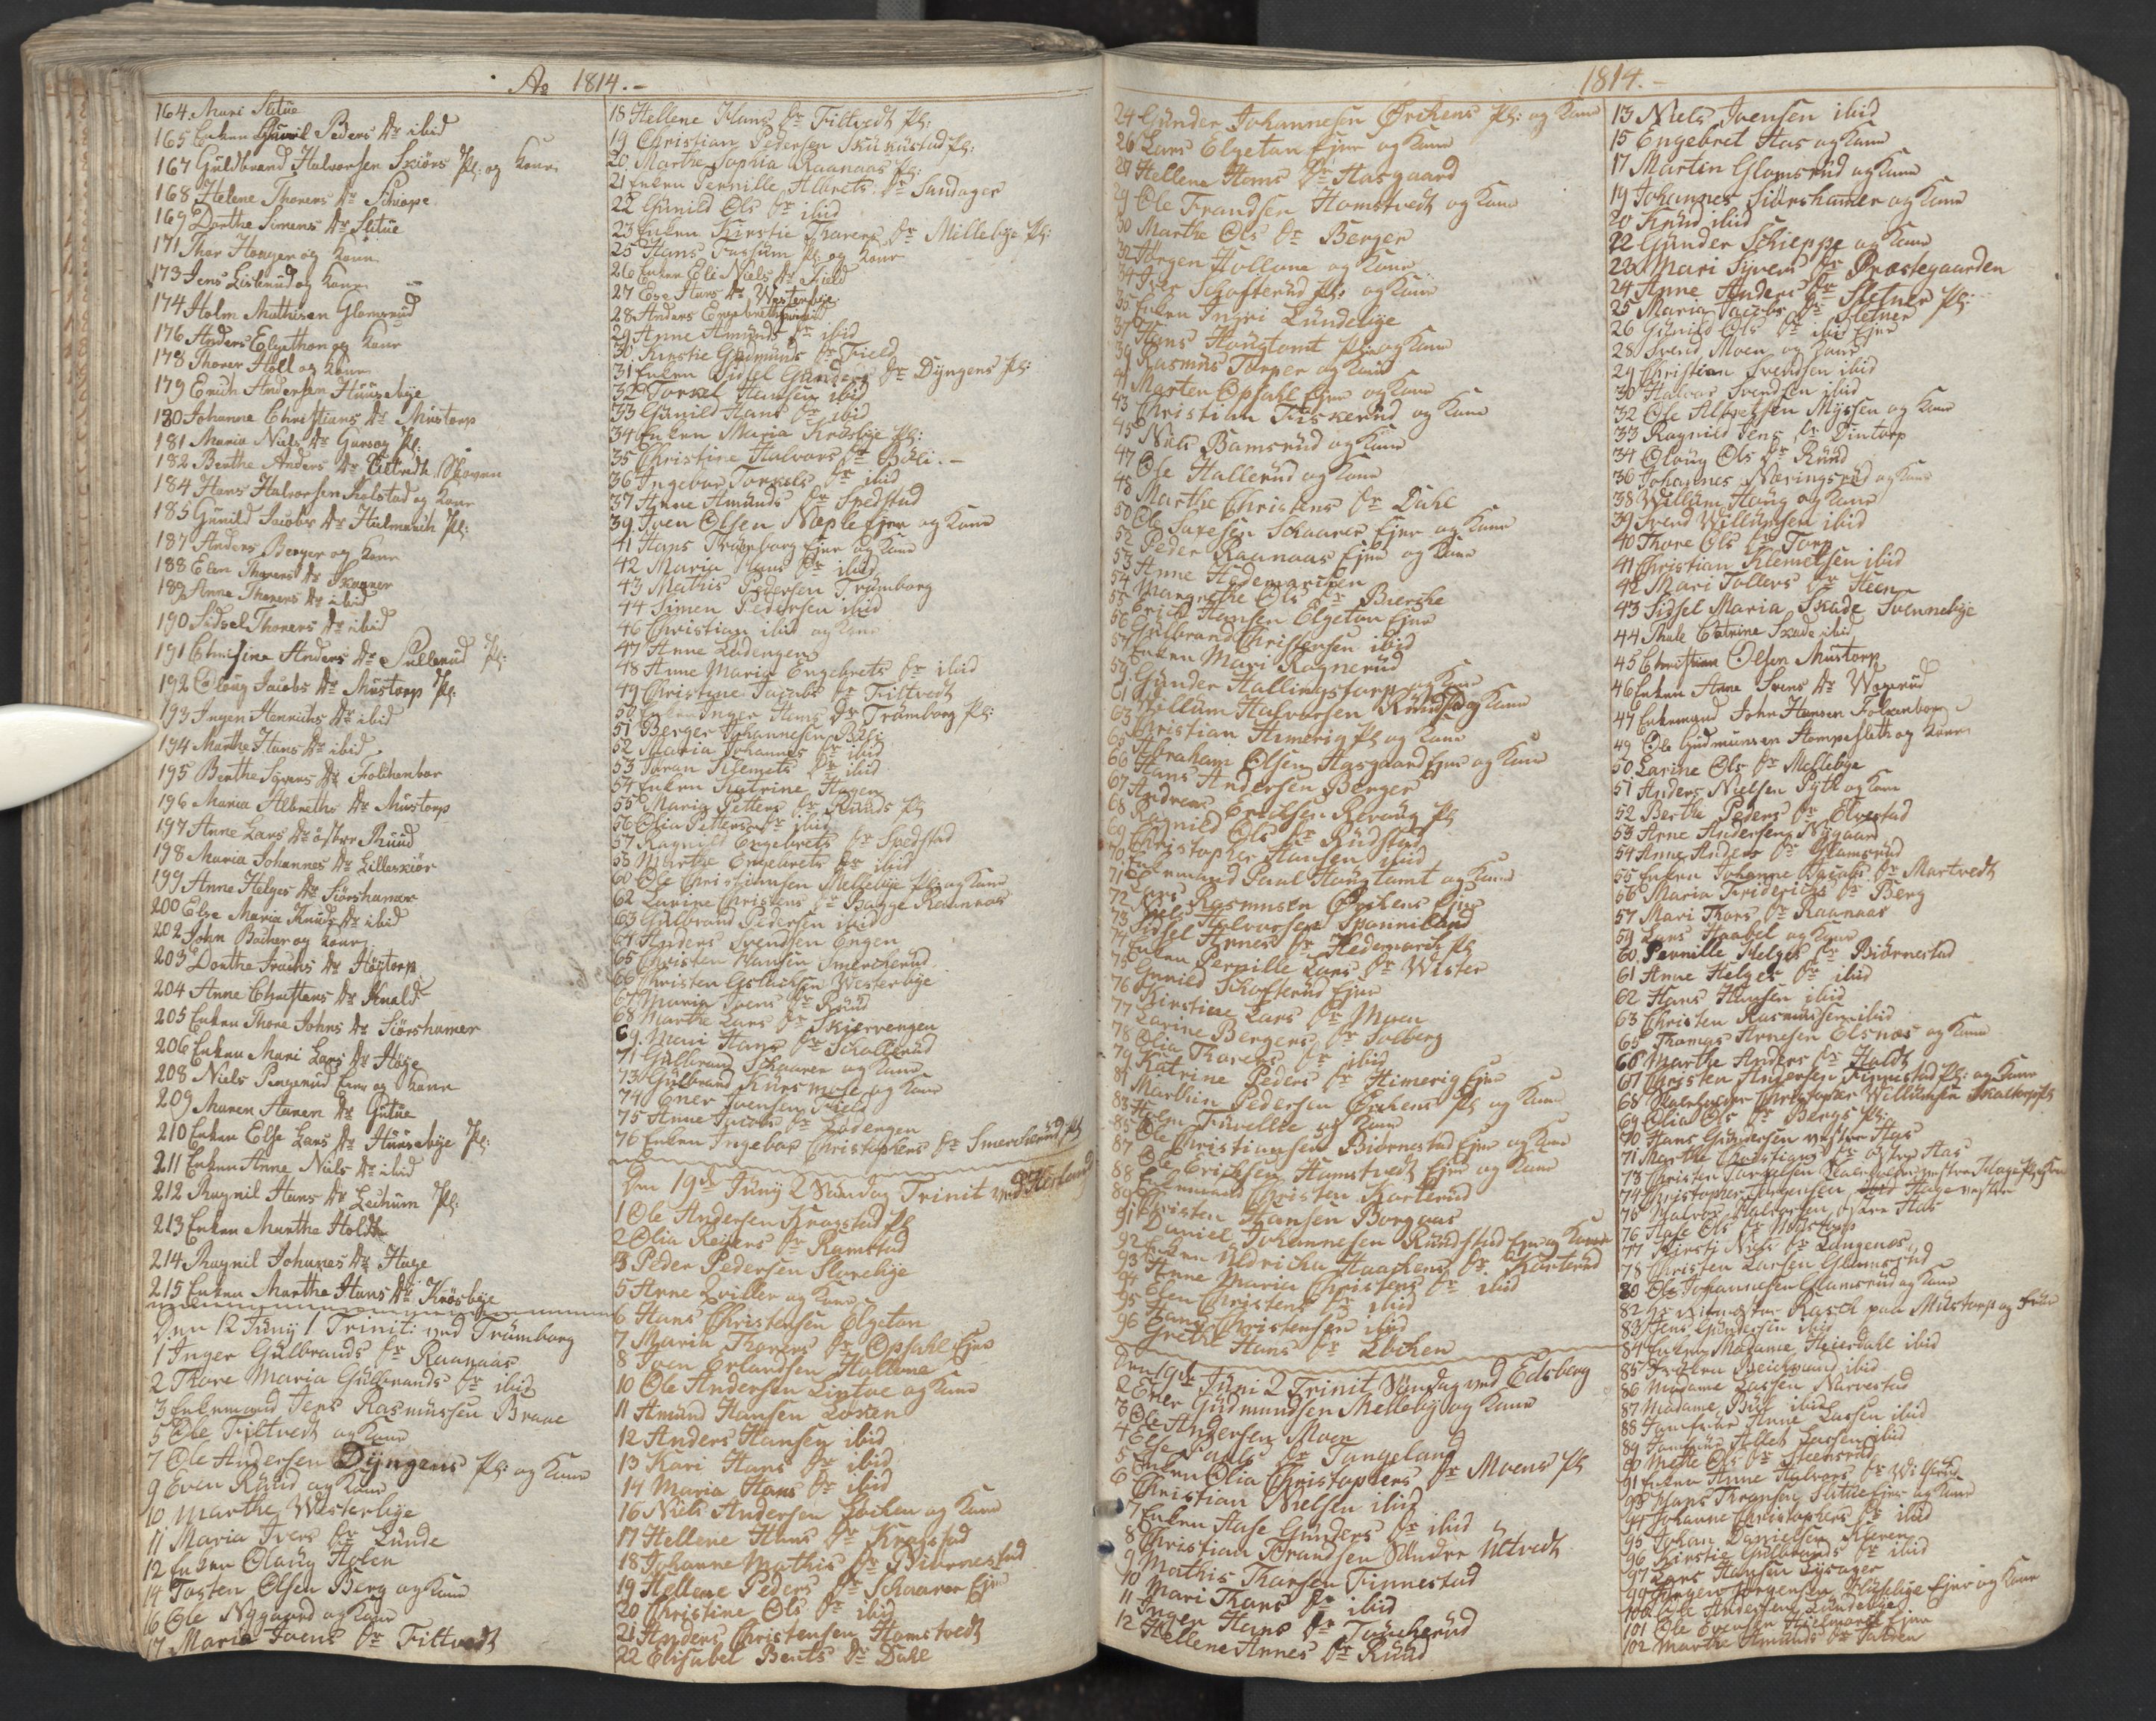 Ao 1814.-
164 Mari Slitue
165 Enken Gunil Peders Dr ibid
167 Guldbrand Halvorsen Skiörs Pl: og Kone
168 Helene Thorers Dr Schiope
169 Dorthe Simens Dr Slitue
171 Thor Haager og Kone
173 Jens Lislerud og Kone
174 Holm Mathisen Glomsrud
176 Anders Elgethon og Kone
178 Thorer Holl og Kone
179 Erich Andersen Huusebye
180 Johanne Christians Dr Mustorp
181 Maria Niels Dr Garseg Pl:
182 Berthe Anders Dr Skogen
184 Hans Halvorsen Kolstad og Kone
185 Gunild Jacobs Dr Hielmark Pl:
187 Anders Berger og Kone
188 Elen Thorers Dr Skaarer
189 Anne Thorers Dr ibid
190 Sidsel Thorers Dr ibid
191 Christine Anders Dr Pullerud Pl:
192 Oloug Jacobs Dr Mustorp Pl:
193 Ingen Henrichs Dr ibid
194 Marthe Hans Dr ibid
195 Berthe Syvers Dr Folchenbor
196 Maria Albreths Dr Mustorp
197 Anne Lars Dr østre Ruud
198 Maria Johannes Dr Lilleskiör
199 Anne Helges Dr Siörshamer
200 Else Maria Knuds Dr ibid
202 John Bacher og Kone
203 Dorthe Isachs Dr Höytorp
204 Anne Christens Dr Knald
205 Enken Thore Johns Dr Siörshamer
206 Enken Mari Lars Dr Höye
208 Niels Pengerud Ejer og Kone
209 Maren Hanem Dr Gutue
210 Enken Else Lars Dr Huusebye Pl:
211 Enken Anne Niels Dr ibid
212 Ragnil Hans Dr Lechum Pl:
213 Enken Marthe Holdt
214 Ragnil Johanes Dr Hage
215 Enken Marthe Hans Dr Krosbye
Den 12 Juny 1 Trinit: ved Trömborg
1 Inger Gulbrands Dr Raanaas
2 Thore Maria Gulbrands Dr ibid
3 Enkemand Jens Rasmussen Braae
5 Ole Filtvedt og Kone
7 Ole Andersen Dyngens Pl: og Kone
9 Even Ruud og Kone
10 Marthe Westerbye
11 Maria Ivers Dr Lunde
12 Enken Oloug Holen
14 Tosten Olsen Berg og Kone
16 Ole Nygaard og Kone
17 Maria Ivens Dr Filtvedt
18 Hellene Hans Dr Filtvedt Pl:
19 Christian Pedersen Skukustad Pl:
20 Marthe Sophia Raanaas Pl:
21 Enken Pernille Albrets Dr Sandager
22 Gunild Ols Dr ibid
23 Enken Kirstie Thorers Dr Millebye Pl:
25 Hans Fossum Pl: og Kone
26 Enken Eli Niels Dr Field
27 Else Hans Dr Westerbye
28 Anders Engebrethsen ibid
29 Anne Amunds Dr ibid
30 Kirstie Gudmunds Dr Field
31 Enken Sidsel Gunders Dr Dyngens Pl:
32 Torkel Hansen ibid
33 Gunild Hans Dr ibid
34 Enken Maria Krosbye Pl:
35 Christine Halvors Dr Böli.-
36 Ingebor Torkels Dr ibid
37 Anne Amunds Dr Spedstad
39 Iven Olsen Næple Ejer og Kone
41 Hans Trömborg Ejer og Kone
42 Maria Hans Dr ibid
43 Mathis Pedersen Trömborg
44 Simen Pedersen ibid
46 Christian ibid og Kone
47 Anne Ladengen
48 Anne Maria Engebrets Dr ibid
49 Christine Jacobs Dr Filtvedt
50 Enken Inger Hans Dr Trömborg Pl:
51 Berger Johannesen Böli
52 Maria Johannes Dr ibid
53 Joran Klemets Dr ibid
54 Enken Katrine Hagen
55 Maria Petters Dr Ruuds Pl
56 Olia Petters Dr ibid
57 Ragnild Engebrets Dr Spedstad
58 Marthe Engebrets Dr ibid
60 Ole Christiansen Mellebye Pl: og Kone
62 Larine Christens Dr Bagge Raanaas
63 Gulbrand Pedersen ibid
64 Anders Svendsen Engen
65 Christen Hansen Smercherud
66 Christen Gslachsen Westerbye
67 Maria Ivens Dr Ruud
68 Marthe Lars Dr Skiervengen
69. Mari Hans Dr Schallerud
71 Gulbrand Schaarer og Kone
73 Gulbrand Kursmose og Kone
74 Ener Ivensen Field
75 Anne Jacobs Dr Ladengen
76 Enken Ingebor Christophers Dr Smercherud Pl
Den 19de Juny 2 Söndag Trinit ved Herland
1 Ole Andersen Kragstad Pl
2 Olia Reiers Dr Ramstad
3 Peder Pedersen Slorebye
5 Arne Lviller og Kone
6 Hans Christensen Elgeton
7 Maria Thorers Dr Opsahl Ejer
8 Iven Erlandsen Hallene
10 Ole Andersen Lintoe og Kone
11 Amund Hansen Løken
12 Anders Hansen ibid
13 Kari Hans Dr ibid
14 Maria Hans Dr ibid
16 Niels Andersen Lochen og Kone
17 Hellene Hans Dr Kragstad
18 Johanne Mathis Dr Biörnestad
19 Hellene Peders Dr Schaarer Ejer
20 Christine Ols Dr ibid
21 Anders Christensen Homstvedt
22 Elisabet Bents Dr Dahl
1814.-
24 Gunder Johannesen Örchens Pl: og Kone
26 Lars Elgeton Ejer og Kone
27 Hellena Hans Dr Hasgaard
29 Ole Frandsen Homstvedt og Kone
30 Marthe Ols Dr Berger
32 Jörgen Hollene og Kone
34 Iver Schofterud Pl: og Kone
35 Enken Ingri Lundebye
37 Hans Hougtomt Pl: og Kone
39 Rasmus Torper og Kone
41 Morten Opsahl Ejer og Kone
43 Christian Fiskerud og Kone
45 Niels Bamsrud og Kone
47 Ole Hallerud og Kone
48 Marthe Christens Dr Dahl
50 Ole Saxesen Schaarer Ejer og Kone
52 Peder Raanaas Ejer og Kone
53 Anne Hedemarchen
54 Mangrethe Ols Dr Bierche
55 Erich Hansen Elgeton Ejer
56 Gulbrand Christensen ibid
57 Enken Mari Ragnerud
59 Gunder Hallingstorp og Kone
61 Wollum Halvorsen Rudstad og Kone
63 Christian Himerig Pl og Kone
65 Abraham Olsen Hasgaard Ejer og Kone
66 Hans Andersen Berger
67 Andreas Erichsen Revoug Pl
68 Ragnild Ols Dr Rudstad
69 Christopher Hansen ibid
70 Enkemand Paul Hougtomt og Kone
71 Lars Rasmusen Örchens Ejer
72 Niels Halvorsen Spannilund
73 Sidsel Arnes Dr Hedemarch Pl
74 Enken Pernille Lars Dr Wister
75 Gunild Schofterud Ejer
76 Kirstine Lars Dr Moen
77 Larine Bergers Dr Solberg
78 Olia Thorers Dr ibid
79 Katrine Peders Dr Himerig Ejer
81 Marthin Pedersen Örchens Pl og Kone
83 Holm Fuvelle og Kone
85 Ole Christiansen Biörnestad Ejer og Kone
87 Ole Erichsen Hamstvedt Ejer og Kone
88 Enkemand Christen Korterud
89 Christen Hansen Borgaas
91 Daniel Johannesen Rudstad Ejer og Kone
92 Enken Uldricha Haachens Dr Korterud
93 Anne Maria Christens Dr ibid
94 Elen Christens Dr ibid
95 Hans Christensen ibid
96 Grethe Hans Dr Lochen
Den 19de Juni 2 Trinit Söndag ved Edsberg
2 Erler Gudmundsen Mellebye og Kone
3 Ole Andersen Moen
4 Else Pauls Dr Tangeland
5 Enken Olia Christophers Dr Moens Pl
6 Christian Nielsen ibid
7 Enken Aase Gunders Dr ibid
8 Christian Brandsen Söndre Utvedt
9 Mathis Thorsen Finnestad
10 Mari Thors Dr ibid
11 Ingen Hans Dr Toucherud
12 Hellene Annes Dr Ruud
13 Niels Ivensen ibid
15 Engebret Has og Kone
17 Martin Glomsrud og Kone
19 Johannes Siörshamer og Kone
20 Knud ibid
22 Gunder Schieppe og Kone
23 Mari Syvers Dr Præstegaarden
24 Anne Anders Dr Sletner Pl:
25 Maria Jacobs Dr Sletner
26 Gunild Ols Dr ibid Ejer
28 Svend Moen og Kone
29 Christian Svendsen ibid
30 Halvor Svendsen ibid
32 Ole Alfretsen Myssen og Kone
33 Ragnild Jens Dr Dintorp
34 Oloug Ols Dr Ruud
36 Johannes Næringsrud og Kone
38 Willum Houg og Kone
39 Svend Willumsen ibid
40 Thore Ols Dr Torp
41 Christian Klemetsen ibid
42 Mari Tollers Dr Steen
43 Sidsel Maria Skade Svennebye
44 Thale Catrine Skade ibid
45 Christian Olsen Mustorp
46 Enken Anne Svens Dr Wegerud
47 Enkemand John Hansen Folkenborg
49 Ole Gudmunsen Hompesleth og Kone
50 Larine Ols Dr Mellebye
51 Anders Nielsen Pytt og Kone
52 Berthe Peders Dr Elvestad
53 Arne Andersen Nygaard
54 Anne Anders Dr Glomsrud
55 Enken Johanne Jacobs Dr Martvedt
56 Maria Friderichs Dr Berg
57 Mari Thors Dr Raanaas
59 Lars Haabel og Kone
60. Pernille Helges Dr Biörnestad
61 Anne Helges Dr ibid
62 Hans Hansen ibid
63 Christen Rasmussen ibid
65 Thomas Arnesen Elsnæs og Kone
66 Marthe Anders Dr Holdt
67 Christen Andersen Finnestad Pl: og Kone
68 Skoleholder Christopher Willumsen Skaltorp Pl
69 Olia Ols Dr Bergs Pl:
70 Hans Gundersen vestre Has
71 Marthe Christians Dr østre Has
73 Christen Torkelsen
74 Christopher Jörgensen Hage vestre
75 Halvor Halvorsen østre Has
76 Aase Ols Dr Mustorp
77 Kirsti Niels Dr Langenæs
78 Christen Larsen Glomsrud
80 Ole Johannesen Glomsrud og Kone
82 Hr Ritmester Rasch paa Mustorp og Frue
83 Jens Gundersen ibid
84 Enken Madame Heierdahl ibid
85 Frøken Beichmand ibid
86 Madame Lassen Narvestad
87 Madame Bye ibid
88 Jomfrue Anne Lassen ibid
89 Jomfrue Mallet Lassen ibid
90 Mette Ols Dr Steensrud
91 Enken Anne Halvors Dr Wilberg
93 Hans Thronsen Slitue Ejer og Kone
94 Johanne Christophers Dr ibid
95 Johan Danielsen Kieren
96 Kirstie Gulbrands Dr ibid
97 Lars Hansen Lysager
99 Jörgen Jörgensen Huusebye Ejer og Kone
100 Ole Andersen Lundebye
101 Ole Evensen Hielmark Ejer
102 Marthe Amunds Dr Jarden